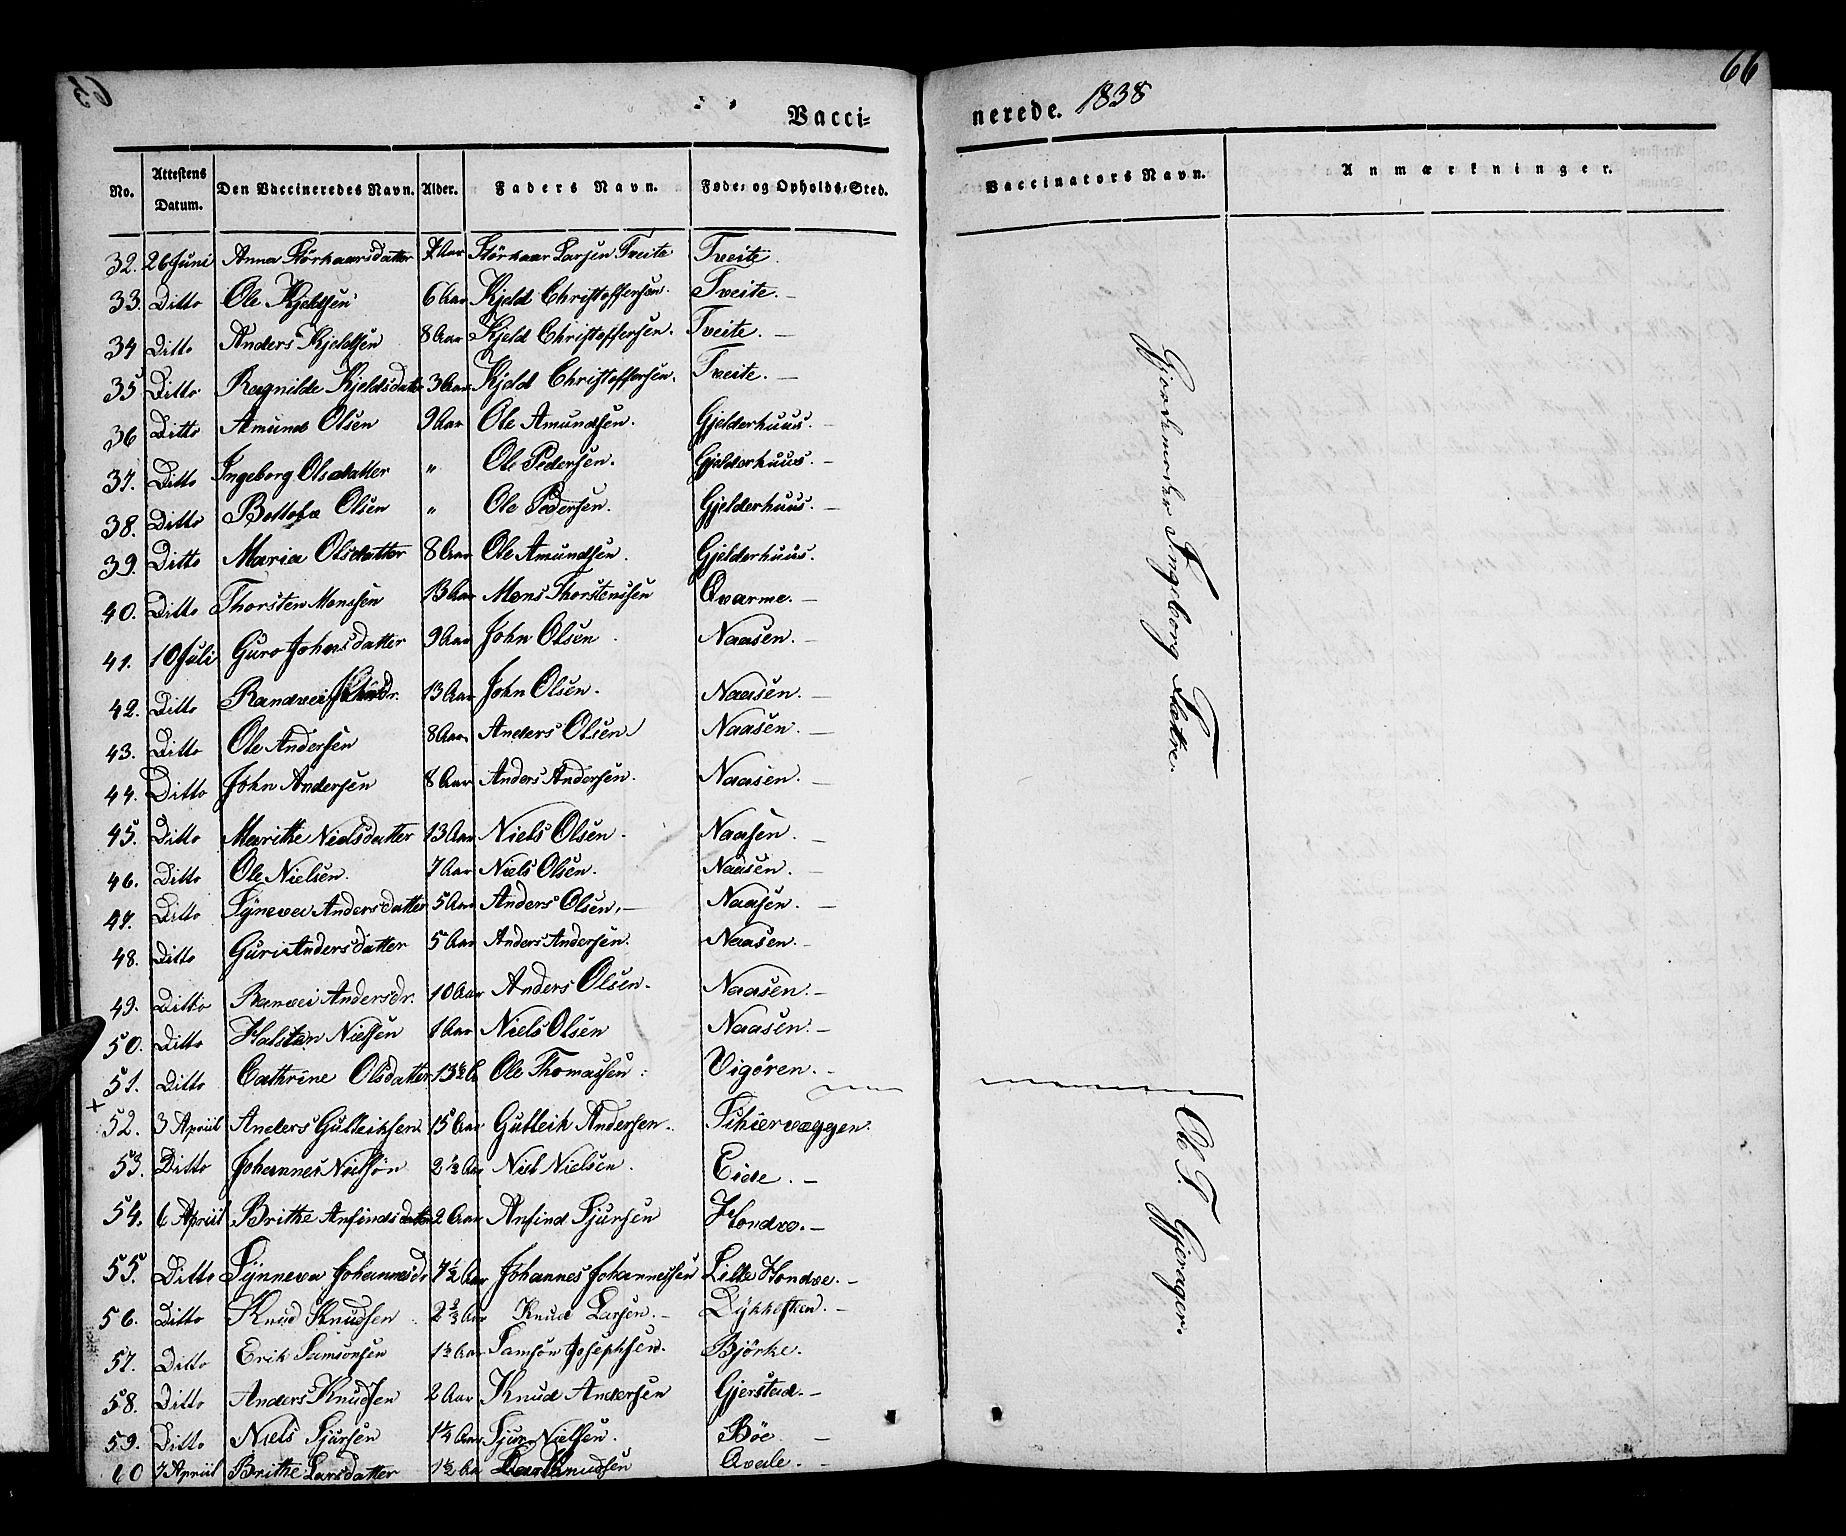 65
66
Vacci=
nerede. 1838
No. Attestens Datum. Den Vaccineredes Navn. Alder. Faders Navn. Føde= og Opholds=Sted. Vaccinators Navn. Anmærkninger.
32. 26 Juni Anna Størkaarsdatter 7 Aar Størkaar Larsen Tveite Tveite.
33. Ditto Ole Kjeldsen 6 Aar Kjeld Christoffersen. Tveite. —
34 Ditto Anders Kjeldsen 8 Aar Kjeld Christoffersen. Tveite. —
35 Ditto Ragnilde Kjeldsdatter 3 Aar Kjeld Christoffersen. Tveite. —
36 Ditto Amund Olsen 9 Aar Ole Amundsen. Gjelderhuus. —
37. Ditto Ingeborg Olsdatter " Ole Pedersen. Gjelderhuus. —
38. Ditto Bottolv Olsen " Ole Pedersen. Gjelderhuus. —
39. Ditto Maria Olsdatter 8 Aar Ole Amundsen. Gjelderhuus.
40. Ditto Thorsten Monssen 13 Aar Mons Thorstenssen Qvarme. —
41. 10 Juli Guro Johnsdatter 9 Aar John Olsen. Naasen. —
42. Ditto Randvei Johnsdr. 13 Aar John Olsen. Naasen. —
43. Ditto Ole Andersen 8 Aar Anders Olsen Naasen. —
44. Ditto John Andersen 8 Aar Anders Andersen. Naasen. —
45. Ditto Marithe Nielsdatter 13 Aar Niels Olsen. Naasen. —
46. Ditto Ole Nielsen. 7 Aar Niels Olsen. Naasen. —
47. Ditto Synevei Andersdatter 5 Aar Anders Olsen. — Naasen. —
48. Ditto Guri Andersdatter 5 Aar Anders Andersen. Naasen. —
49. Ditto Ranvei Andersdr. 10 Aar Anders Olsen. Naasen. —
50. Ditto Halstan Nielsen 1 Aar Niels Olsen Naasen. —
51. Ditto Cathrine Olsdatter 13½ A Ole Thomassen. Vigøren. —
+
52. 3 April Anders Gulleiksen 15 Aar Gulleik Andersen. Schiervæggen.
53. Ditto Johannes Nielsøn 2½ Aar Niels Nielsen. Eide. —
54. 6 April Brithe Anfindsdatter 2 Aar Anfind Sjursen Hondve. —
55. Ditto Synneva Johannesdr 7½ Aar Johannes Johannessen Lille Hondve. —
56. Ditto Knud Knudsen Aar Knud Larsen. — Dykkesteen. —
57. Ditto Erik Samsonsen 1½ Aar Samson Josephsen. Bjørke.
58. Ditto Anders Knudsen 2 Aar Knud Andersen Gjerstad. —
59. Ditto Niels Sjursen 1¼ Aar Sjur Nielsen. Bøe. —
60 7 April Brithe Larsdatter 1½ Aar Lars Knudsen Qvale. —
Gjordemoder Ingeborg Tostre.
Ole T Gjerager.